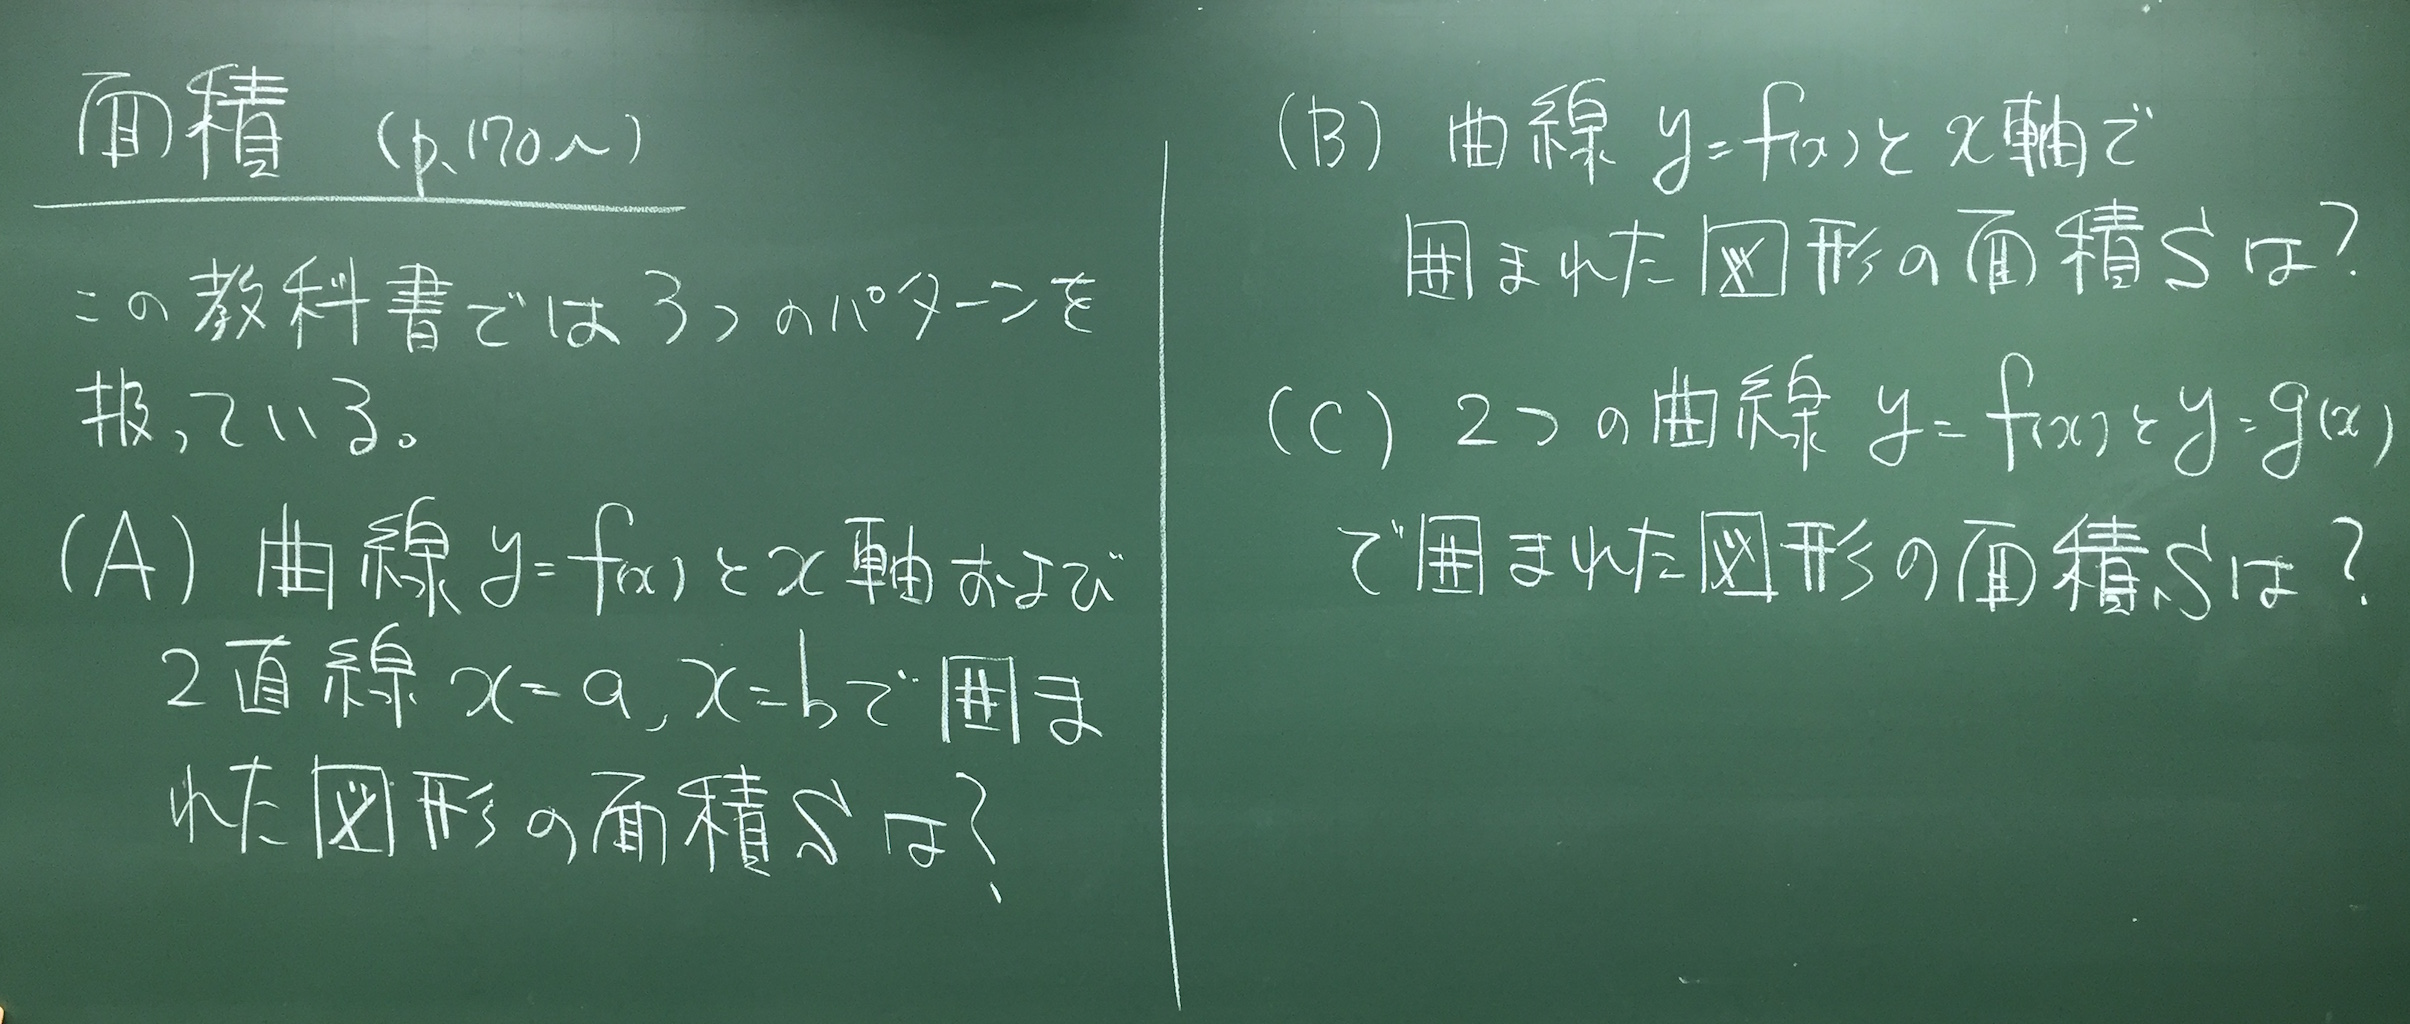 面積 (p.170〜)
この教科書では3つのパターンを
扱っている。
(A) 曲線 y=f(x) と x軸および
2直線 x=a, x=bで囲ま
れた図形の面積Sは?
(B) 曲線 y=f(x) と x軸で
囲まれた図形の面積Sは?
(C) 2つの曲線 y=f(x) と y=g(x)
で囲まれた図形の面積Sは?